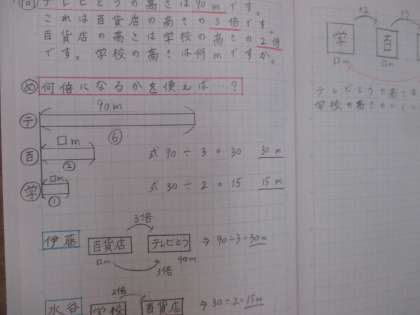 テレビとうの高さは90mです。
これは百貨店の高さの3倍です。
百貨店の高さは学校の高さの2倍
です。学校の高さは何mですか。
何倍になるかを使えば…?
90m
テ
⑥
□m
百
②
式 90÷3=30 30m
□m
学
①
式 30÷2=15 15m
3倍
伊藤 百貨店 テレビとう ⇒90÷3=30m
□m 90m
3倍
2倍
水谷 学校 百貨店 ⇒30÷2=15m
×2 ×3
学 百
□m □m
テレビとうの高さ
学校の高さの